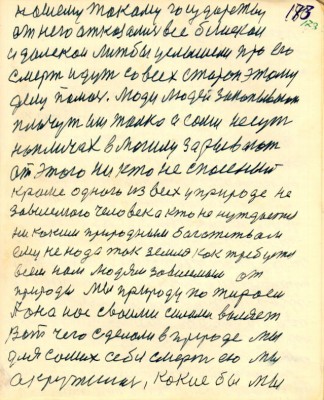 нашему такому государству 173
от него отказалис все близкой 173
и далекой литбы услышели про его
смерт идут со всех старон этому
делу помоч. люди людей закапывают
плачут им толко а сами несут
на плечах в могилу зарывают
от этого ни кто не спасеный
кроме одного из всех у природе не
зависемого человека кто не нуждается
ни каким природным багатством
ему не нада так земля как требуется
всем нам людям зависемым от
природы мы природу по тираем
А она нас своими силами валяет
Вот чего сделали в природе мы
для самих себя смерт ею мы
акружины, какие бы мы